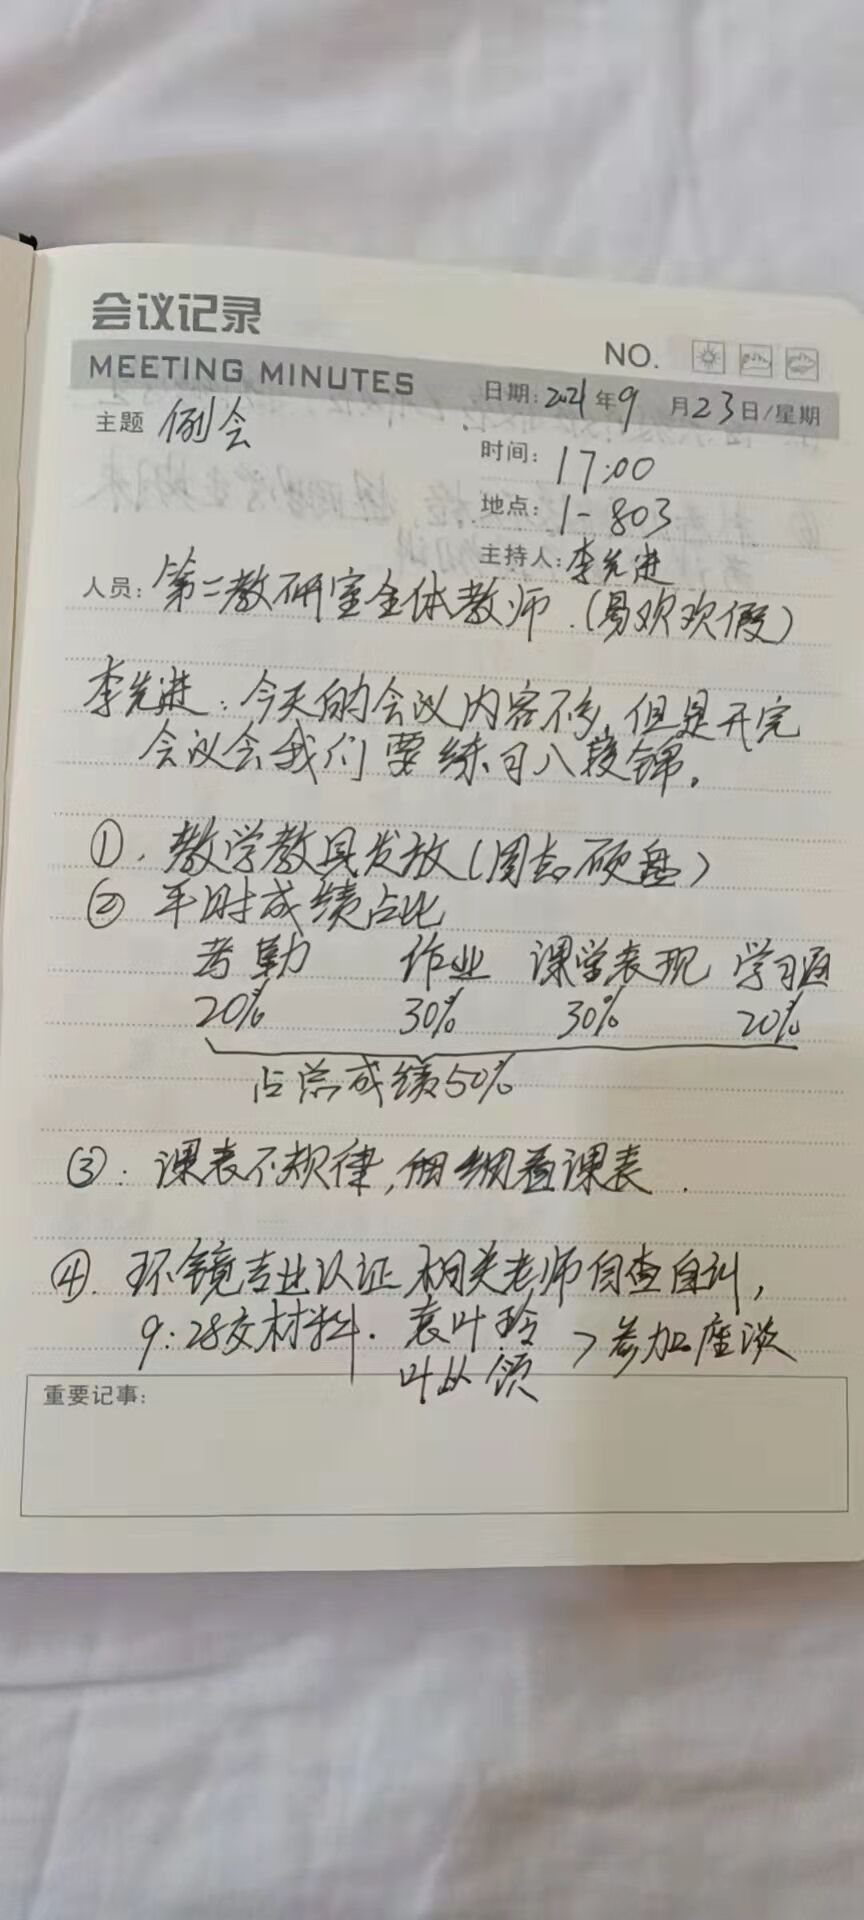 会议记录
NO.
MEETING MINUTES
日期: 2021年9月23日/星期
主题 例会
时间: 17:00
地点: 1-803
主持人: 李先进
人员: 第二教研室全体教师.(易欢欢假)
李先进: 今天的会议内容不多, 但是开完
会议会我们要练习八段锦.
①. 教学教具发放(周志 硬盘)
② 平时成绩占比
考勤 作业 课堂表现 学习通
20% 30% 30% 20%
占总成绩50%
③. 课表不规律, 仔细看课表.
④. 环镜专业认证 相关老师自查自训,
9:28交材料. 袁叶玲 > 参加座谈
叶从领
重要记事: